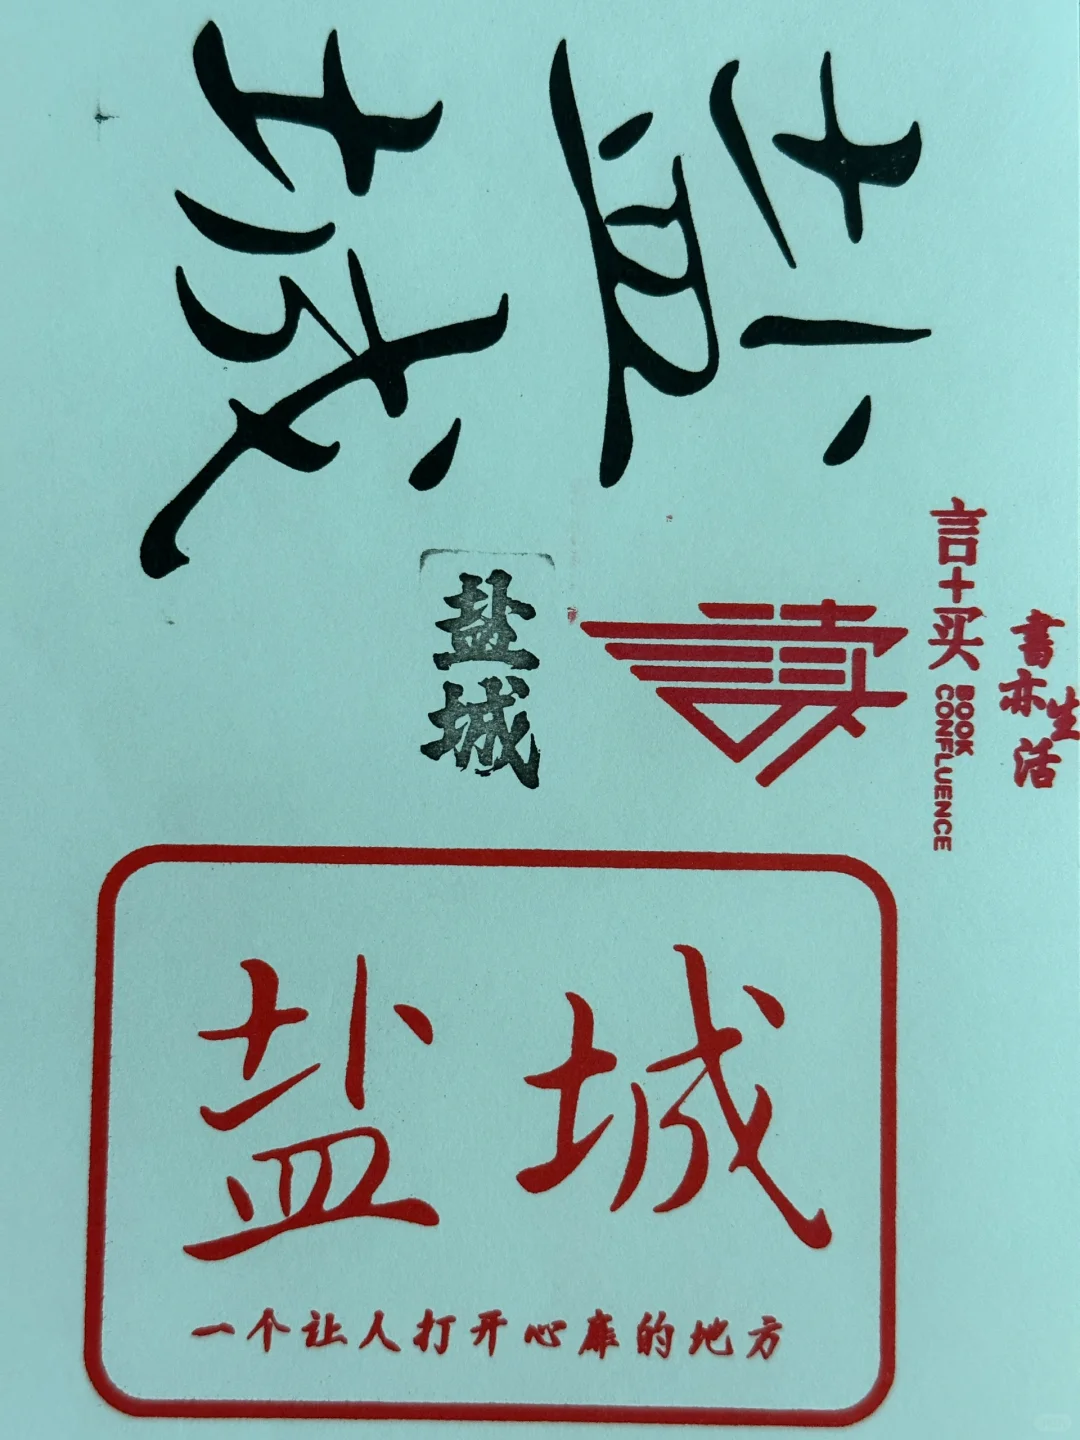 盐城
盐
城
读
言+买
BOOK
CONFLUENCE
書亦生活
盐城
一个让人打开心扉的地方